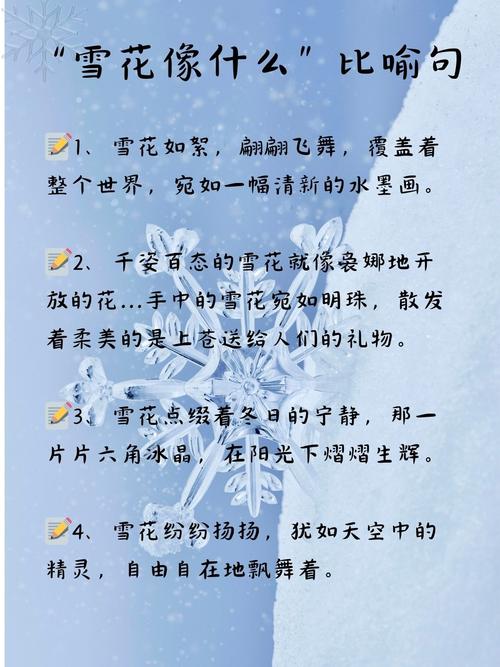 “雪花像什么”比喻句
1、雪花如絮，翩翩飞舞，覆盖着
整个世界，宛如一幅清新的水墨画。
2、千姿百态的雪花就像袅娜地开
放的花...手中的雪花宛如明珠，散发
着柔美的是上苍送给人们的礼物。
3、雪花点缀着冬日的宁静，那一
片片六角冰晶，在阳光下熠熠生辉。
4、雪花纷纷扬扬，犹如天空中的
精灵，自由自在地飘舞着。